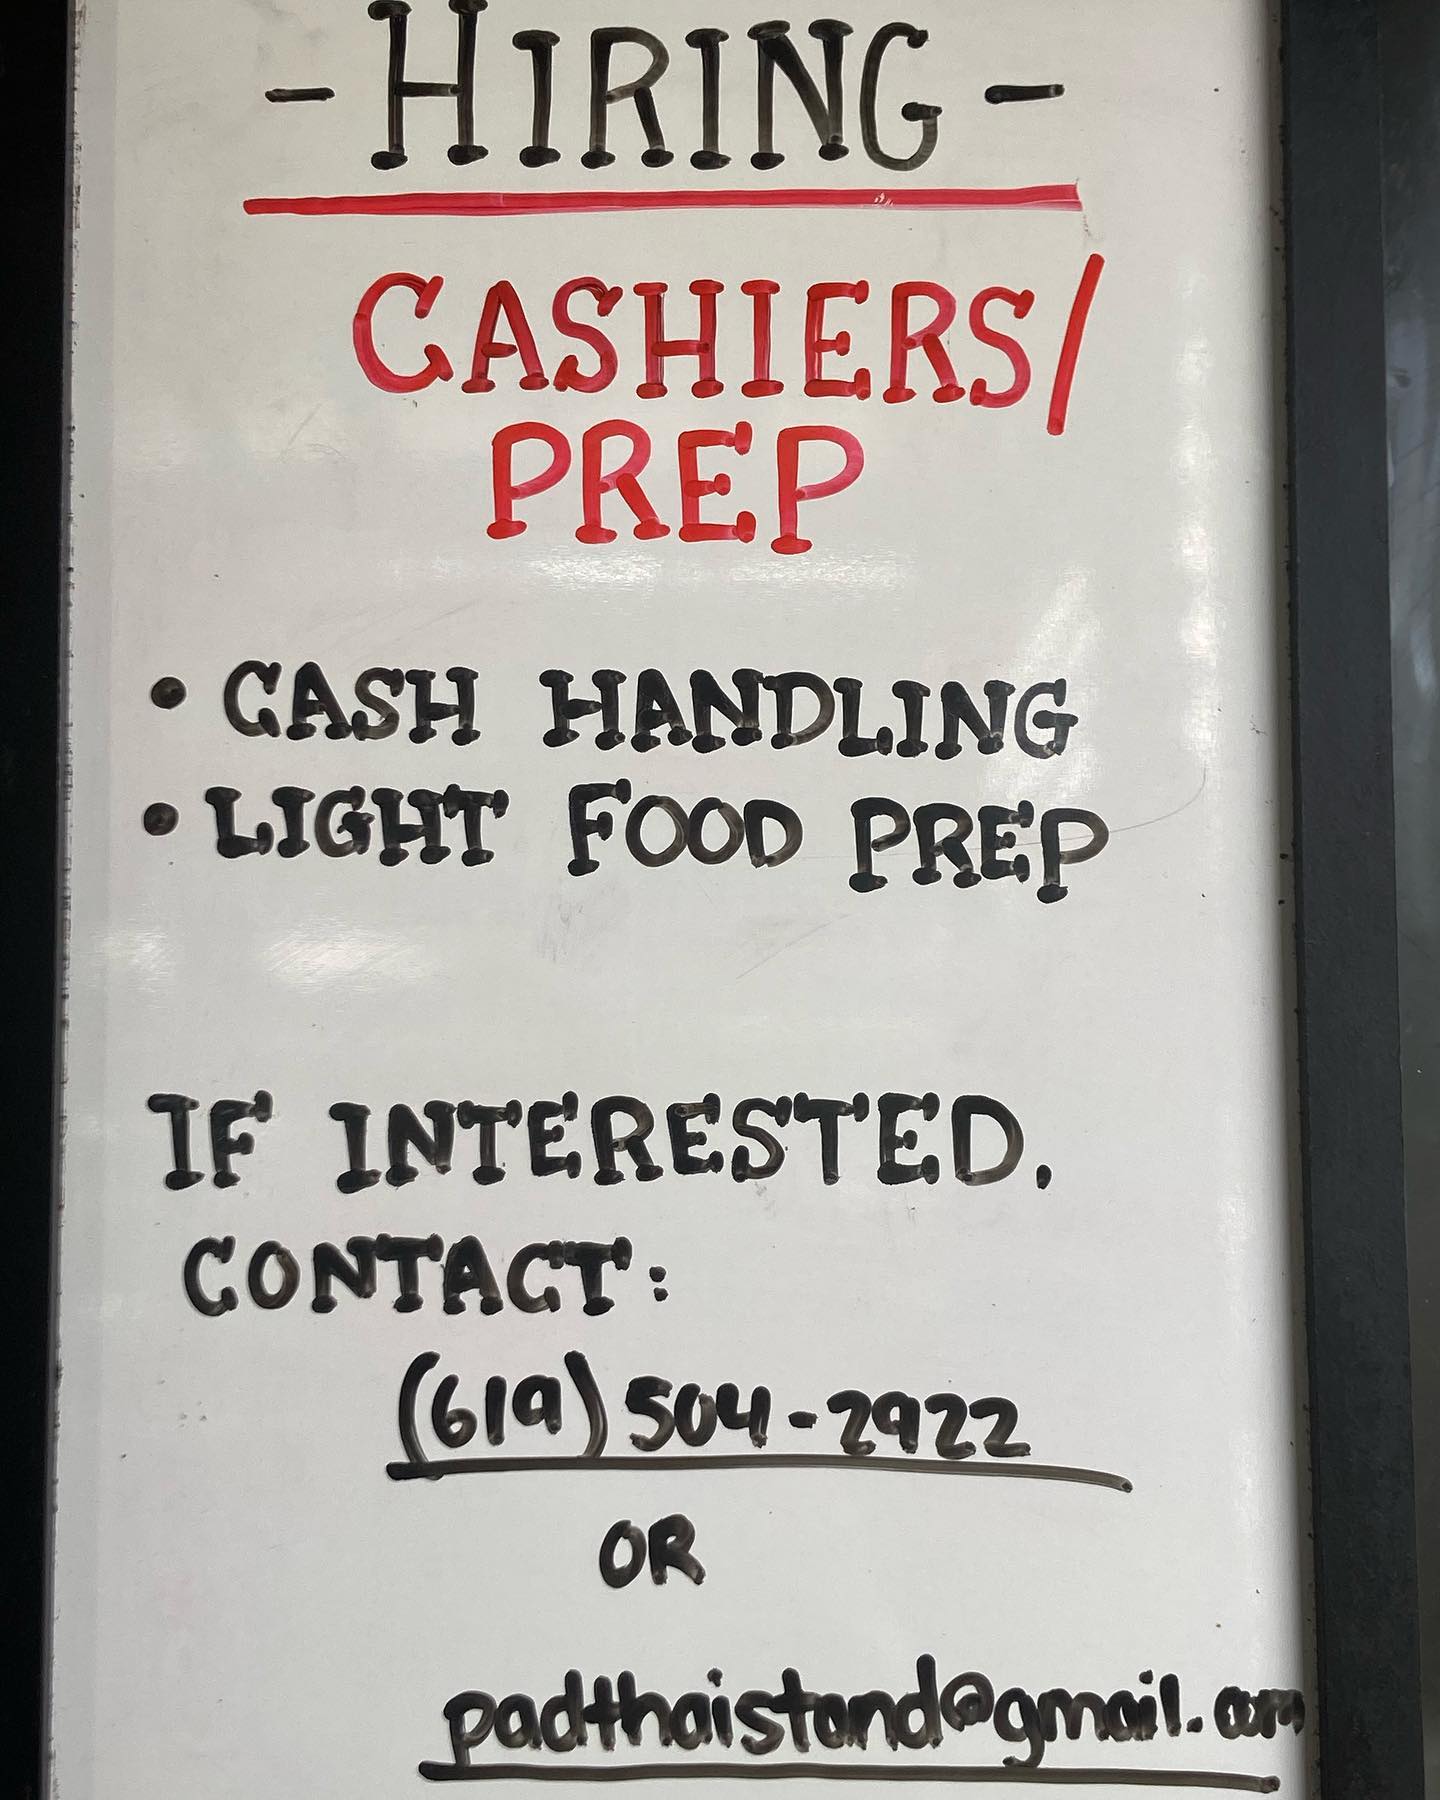 - HIRING -
CASHIERS/
PREP
• CASH HANDLING
• LIGHT FOOD PREP
IF INTERESTED,
CONTACT:
(619) 504-2922
OR
padthaistand@gmail.com